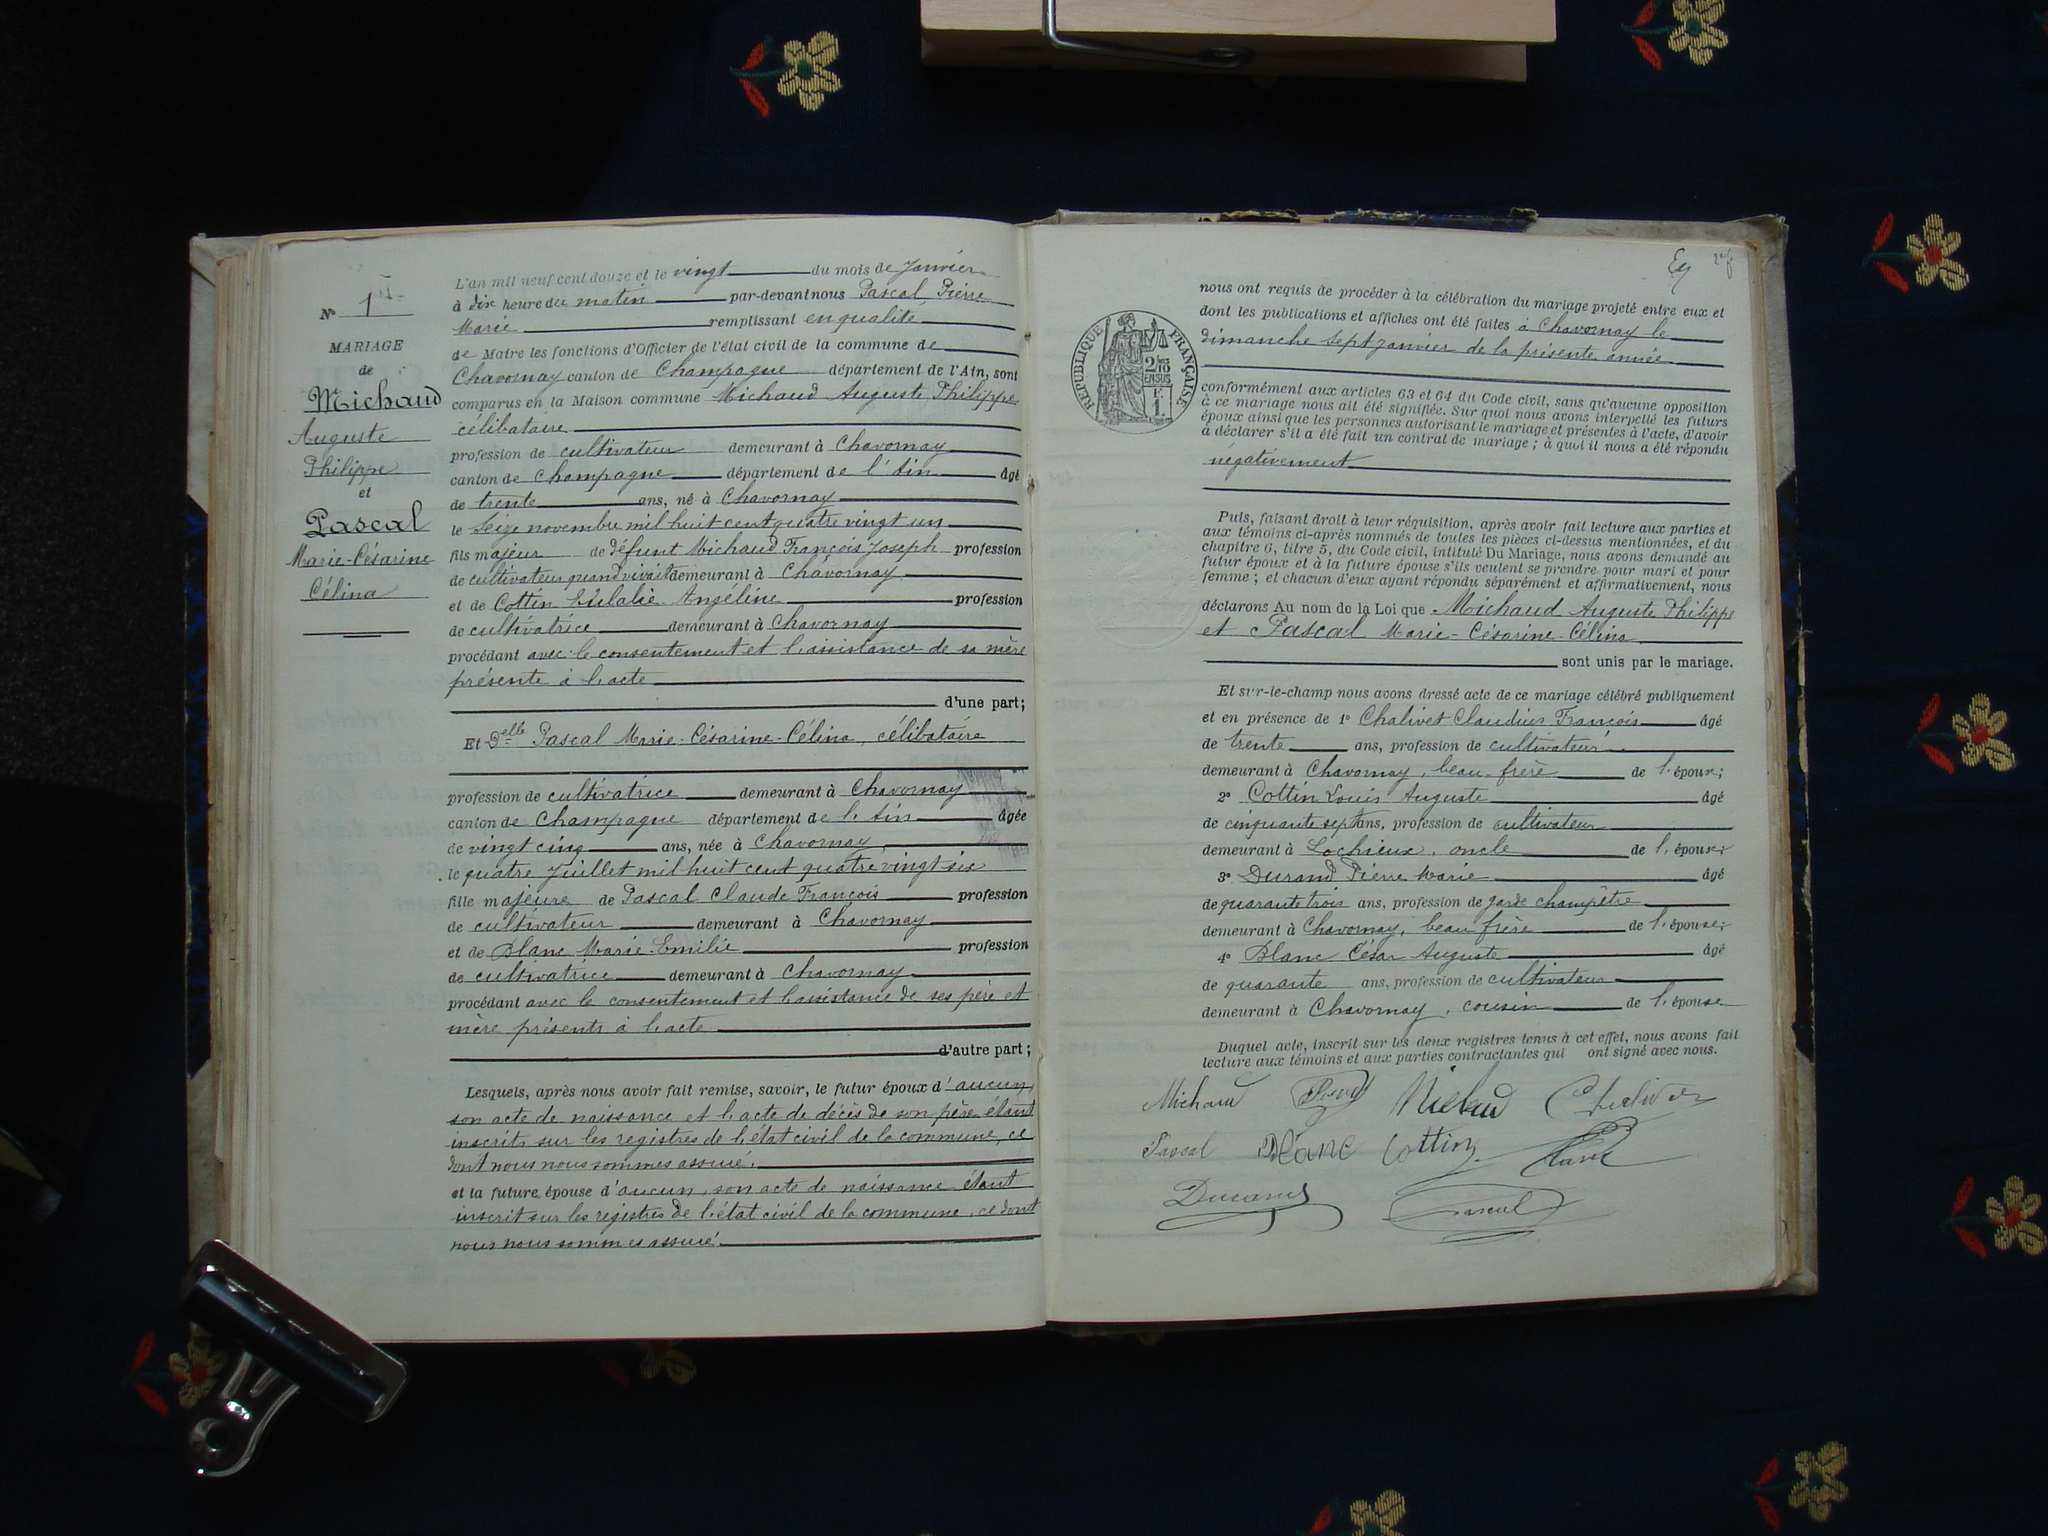 N° 1
MARIAGE
de
Michaud
Auguste
Philippe
et
Pascal
Marie-Césarine
Célina
L'an mil neuf cent douze et le vingt du mois de Janvier
à dix heure du matin par-devant nous Pascal Pierre
Marie remplissant en qualité
de Maire les fonctions d'Officier de l'état civil de la commune de
Chavornay canton de Champagne département de l'Ain, sont
comparus en la Maison commune Michaud Auguste Philippe
célibataire
profession de cultivateur demeurant à Chavornay
canton de Champagne département de l'Ain âgé
de trente ans, né à Chavornay
le Seize novembre mil huit cent quatre vingt un
fils majeur de défunt Michaud François Joseph profession
de cultivateur quand vivait demeurant à Chavornay
et de Cottin Eulalie Angéline profession
de cultivatrice demeurant à Chavornay
procédant avec le consentement et l'assistance de sa mère
présente à l'acte
d'une part;
Et Delle Pascal Marie-Césarine-Célina, célibataire
profession de cultivatrice demeurant à Chavornay
canton de Champagne département de l'Ain âgée
de vingt cinq ans, née à Chavornay,
le quatre Juillet mil huit cent quatre vingt six
fille majeure de Pascal Claude François profession
de cultivateur demeurant à Chavornay
et de Blanc Marie-Emilie profession
de cultivatrice demeurant à Chavornay
procédant avec le consentement et l'assistance de ses père et
mère présents à l'acte
d'autre part;
Lesquels, après nous avoir fait remise, savoir, le futur époux d'aucun,
son acte de naissance et l'acte de décès de son père étant
inscrits sur les registres de l'état civil de la commune, ce
dont nous nous sommes assuré.
et la future épouse d'aucun, son acte de naissance étant
inscrit sur les registres de l'état civil de la commune, ce dont
nous nous sommes assuré.
2 f
RÉPUBLIQUE FRANÇAISE
2/10
EN SUS
F.
1.
nous ont requis de procéder à la célébration du mariage projeté entre eux et
dont les publications et affiches ont été faites à Chavornay le
dimanche sept janvier de la présente année
conformément aux articles 63 et 64 du Code civil, sans qu'aucune opposition
à ce mariage nous ait été signifiée. Sur quoi nous avons interpellé les futurs
époux ainsi que les personnes autorisant le mariage et présentes à l'acte, d'avoir
à déclarer s'il a été fait un contrat de mariage; à quoi il nous a été répondu
négativement
Puis, faisant droit à leur réquisition, après avoir fait lecture aux parties et
aux témoins ci-après nommés de toutes les pièces ci-dessus mentionnées, et du
chapitre 6, titre 5, du Code civil, intitulé Du Mariage, nous avons demandé au
futur époux et à la future épouse s'ils veulent se prendre pour mari et pour
femme; et chacun d'eux ayant répondu séparément et affirmativement, nous
déclarons Au nom de la Loi que Michaud Auguste Philippe
et Pascal Marie-Césarine-Célina
sont unis par le mariage.
Et sur-le-champ nous avons dressé acte de ce mariage célébré publiquement
et en présence de 1° Chalivet Claudius François âgé
de trente ans, profession de cultivateur
demeurant à Chavornay, beau-frère de l'époux;
2° Cottin Louis Auguste âgé
de cinquante sept ans, profession de cultivateur
demeurant à Lochieux, oncle de l'époux;
3° Durand Pierre Marie âgé
de quarante trois ans, profession de garde champêtre
demeurant à Chavornay, beau frère de l'épouse;
4° Blanc César Auguste âgé
de quarante ans, profession de cultivateur
demeurant à Chavornay, cousin de l'épouse
Duquel acte, inscrit sur les deux registres tenus à cet effet, nous avons fait
lecture aux témoins et aux parties contractantes qui ont signé avec nous.
Michaud Michaud Chalivet
Pascal Blanc Cottin Blanc
Durand Pascal